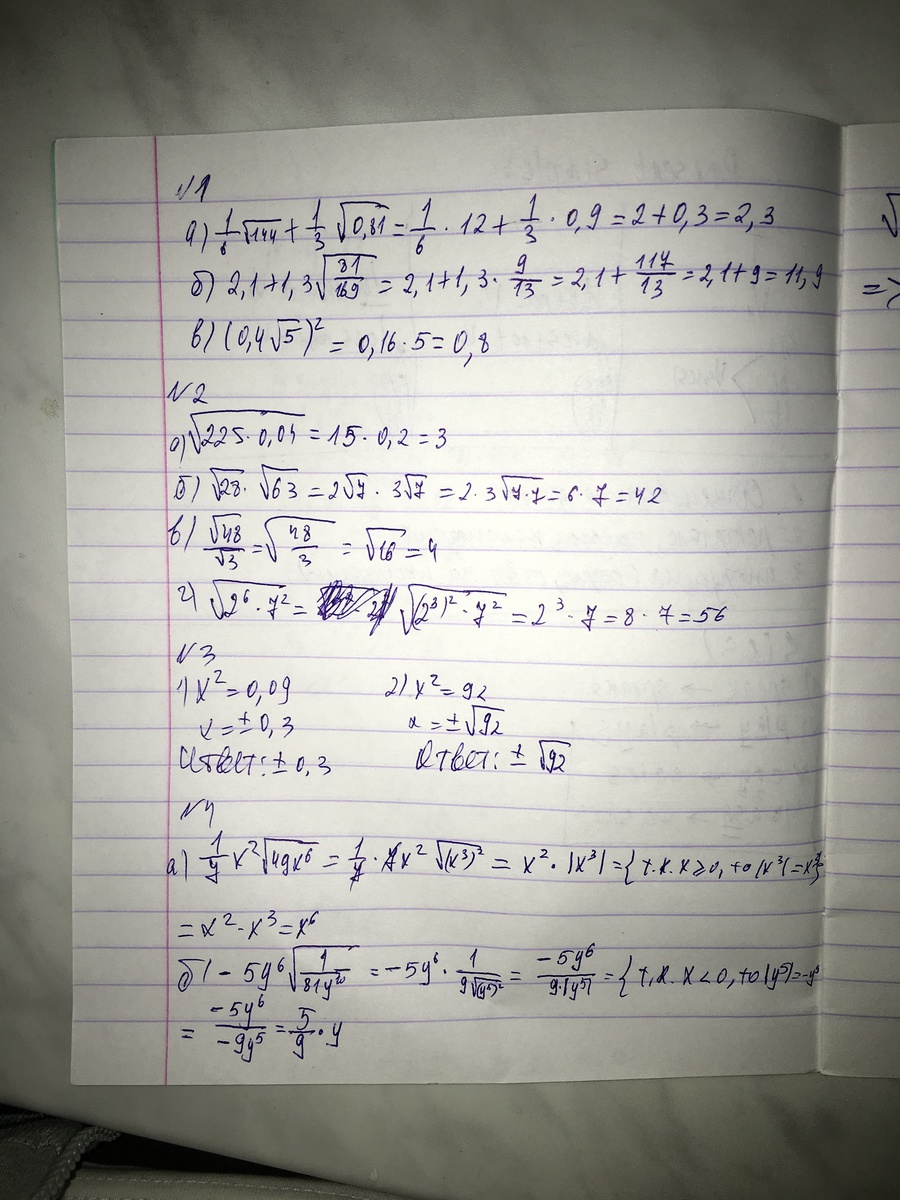 №1
а) 1/6 √144 + 1/3 √0,81 = 1/6 · 12 + 1/3 · 0,9 = 2 + 0,3 = 2,3
б) 2,1 + 1,3 √(81/169) = 2,1 + 1,3 · 9/13 = 2,1 + 117/13 = 2,1 + 9 = 11,9
в) (0,4√5)² = 0,16 · 5 = 0,8
№2
а) √(225 · 0,04) = 15 · 0,2 = 3
б) √28 · √63 = 2√7 · 3√7 = 2 · 3√(7·7) = 6 · 7 = 42
в) √48/√3 = √(48/3) = √16 = 4
г) √(2⁶ · 7²) = √((2³)² · 7²) = 2³ · 7 = 8 · 7 = 56
№3
1) x² = 0,09 2) x² = 92
x = ± 0,3 x = ± √92
Ответ: ± 0,3 Ответ: ± √92
№4
а) 1/7 x² √(49x⁶) = 1/7 · 7x² √((x³)²) = x² · |x³| = { т.к. x ≥ 0, то |x³| = x³}
= x² · x³ = x⁶
б) - 5y⁶ √(1/(81y²⁰)) = -5y⁶ · 1/(9√((y⁵)²)) = -5y⁶/(9·|y⁵|) = { т.к. x < 0, то |y⁵| = -y⁵
= -5y⁶/(-9y⁵) = 5/9 · y
√
=>